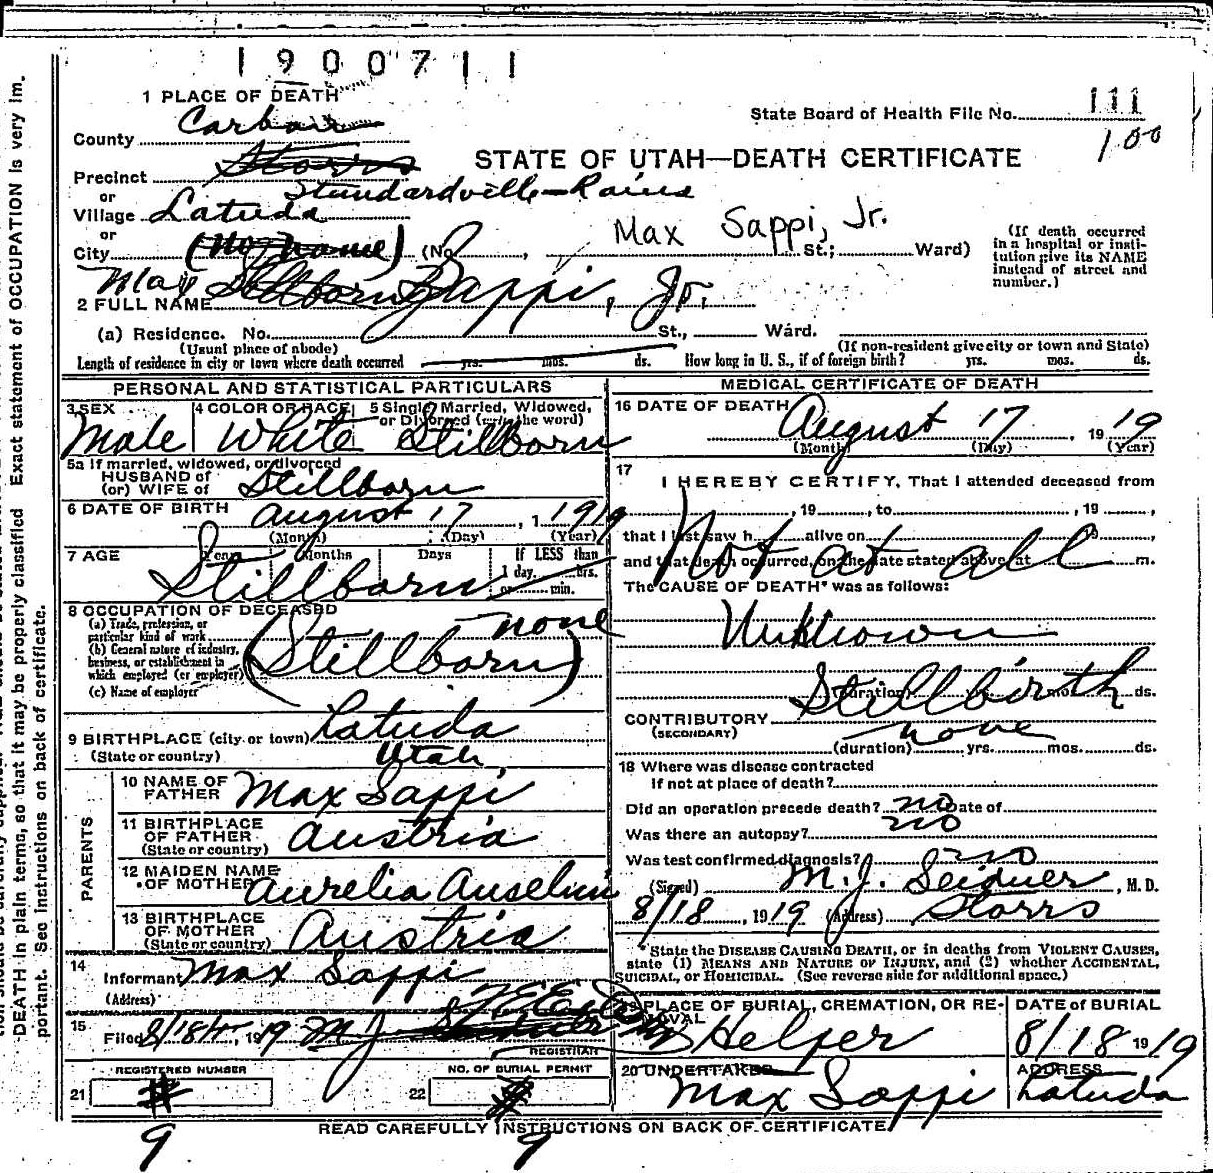 1900711
1 PLACE OF DEATH
State Board of Health File No. 111
County Carbon
1 00
Precinct Storrs
STATE OF UTAH—DEATH CERTIFICATE
or
Standardville-Rains
Village Latuda
or
Max Sappi, Jr.
City (No name) (No. St.; Ward)
(If death occurred in a hospital or institution give its NAME instead of street and number.)
2 FULL NAME Max Stillborn Sappi, Jr.
(a) Residence. No. St., Ward.
(Usual place of abode)
(If non-resident give city or town and State)
Length of residence in city or town where death occurred yrs. mos. ds. How long in U. S., if of foreign birth? yrs. mos. ds.
PERSONAL AND STATISTICAL PARTICULARS
3 SEX 4 COLOR OR RACE 5 Single, Married, Widowed, or Divorced (write the word)
Male White Stillborn
5a If married, widowed, or divorced
HUSBAND of
(or) WIFE of Stillborn
6 DATE OF BIRTH August 17, 1919
(Month) (Day) (Year)
7 AGE Years Months Days If LESS than
1 day, hrs.
or min.
Stillborn
8 OCCUPATION OF DECEASED
(a) Trade, profession, or
particular kind of work none
(b) General nature of industry,
business, or establishment in
which employed (or employer) (Stillborn)
(c) Name of employer
9 BIRTHPLACE (city or town) Latuda
(State or country) Utah
PARENTS
10 NAME OF
FATHER Max Sappi
11 BIRTHPLACE
OF FATHER Austria
(State or country)
12 MAIDEN NAME
OF MOTHER Aurelia Anselmi
13 BIRTHPLACE
OF MOTHER Austria
(State or country)
14
Informant Max Sappi
(Address)
15
Filed 8/18, 1919 M J Seidner
REGISTRAR
REGISTERED NUMBER NO. OF BURIAL PERMIT
21 22
9 9
MEDICAL CERTIFICATE OF DEATH
16 DATE OF DEATH August 17, 1919
(Month) (Day) (Year)
17
I HEREBY CERTIFY, That I attended deceased from
, 19 , to , 19 ,
that I last saw h alive on 19 ,
Not at all
and that death occurred, on the date stated above, at m.
The CAUSE OF DEATH* was as follows:
Unknown
Stillbirth
(duration) yrs. mos. ds.
CONTRIBUTORY none
(SECONDARY)
(duration) yrs. mos. ds.
18 Where was disease contracted
if not at place of death?
Did an operation precede death? no Date of
Was there an autopsy? no
Was test confirmed diagnosis? no
(Signed) M. J. Seidner, M. D.
8/18, 1919 (Address) Storrs
*State the DISEASE CAUSING DEATH, or in deaths from VIOLENT CAUSES,
state (1) MEANS AND NATURE OF INJURY, and (2) whether ACCIDENTAL,
SUICIDAL, or HOMICIDAL. (See reverse side for additional space.)
19 PLACE OF BURIAL, CREMATION, OR REMOVAL DATE of BURIAL
Helper 8/18 1919
20 UNDERTAKER ADDRESS
Max Sappi Latuda
READ CAREFULLY INSTRUCTIONS ON BACK OF CERTIFICATE
DEATH in plain terms, so that it may be properly classified Exact statement of OCCUPATION is very im-
portant. See instructions on back of certificate.